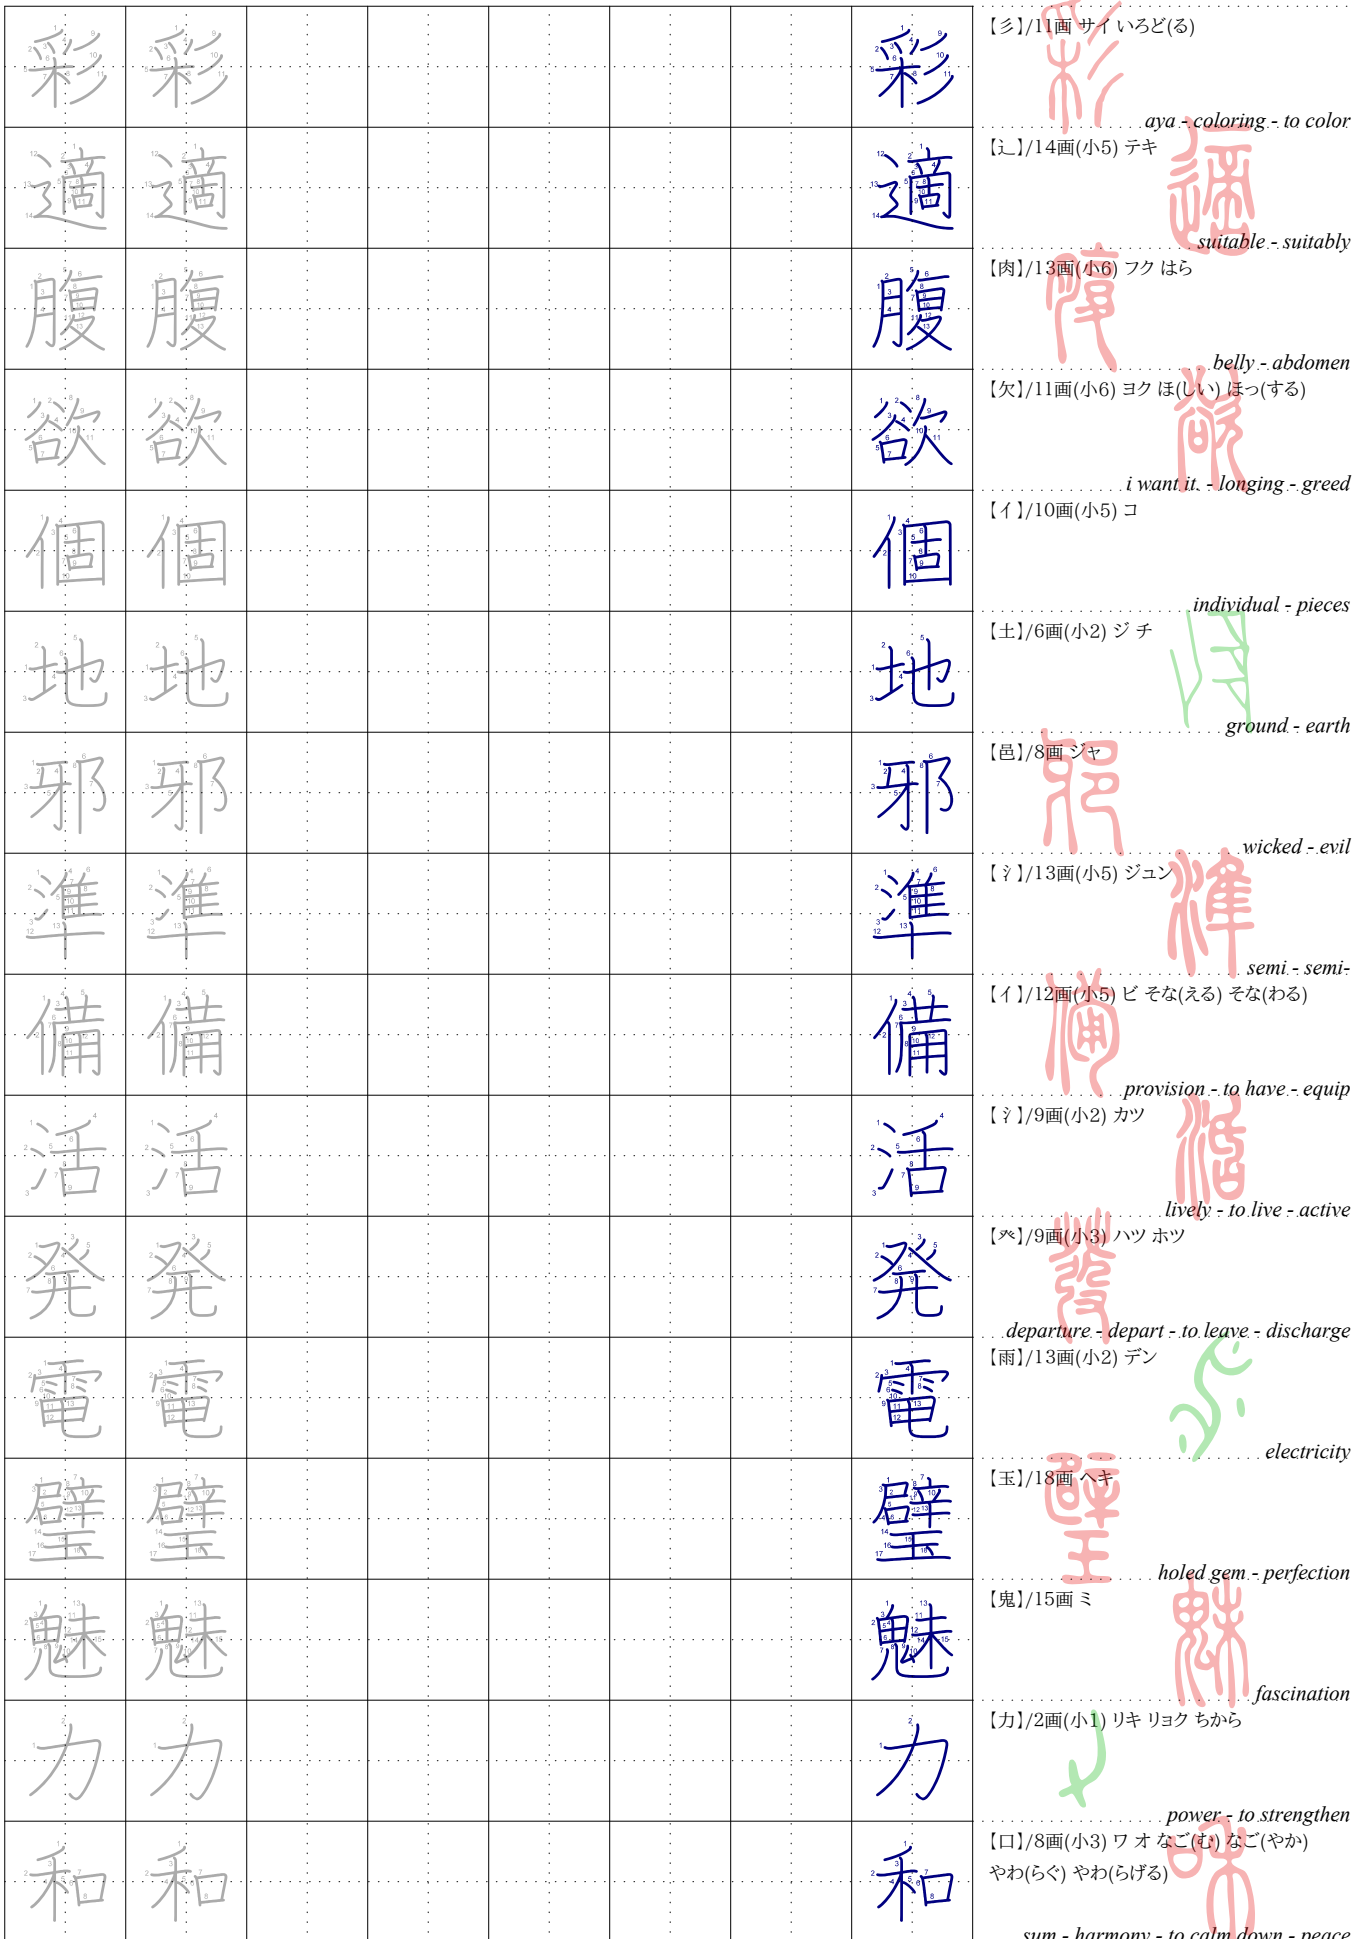 彩 彩 彩 【彡】/11画 サイ いろど(る)
aya - coloring - to color
適 適 適 【辶】/14画(小5) テキ
suitable - suitably
腹 腹 腹 【肉】/13画(小6) フク はら
belly - abdomen
欲 欲 欲 【欠】/11画(小6) ヨク ほ(しい) ほっ(する)
i want it. - longing - greed
個 個 個 【イ】/10画(小5) コ
individual - pieces
地 地 地 【土】/6画(小2) ジ チ
ground - earth
邪 邪 邪 【邑】/8画 ジャ
wicked - evil
準 準 準 【氵】/13画(小5) ジュン
semi - semi-
備 備 備 【イ】/12画(小5) ビ そな(える) そな(わる)
provision - to have - equip
活 活 活 【氵】/9画(小2) カツ
lively - to live - active
発 発 発 【癶】/9画(小3) ハツ ホツ
departure - depart - to leave - discharge
電 電 電 【雨】/13画(小2) デン
electricity
璧 璧 璧 【玉】/18画 ヘキ
holed gem - perfection
魅 魅 魅 【鬼】/15画 ミ
fascination
力 力 力 【力】/2画(小1) リキ リョク ちから
power - to strengthen
和 和 和 【口】/8画(小3) ワ オ なご(む) なご(やか)
やわ(らぐ) やわ(らげる)
sum - harmony - to calm down - peace